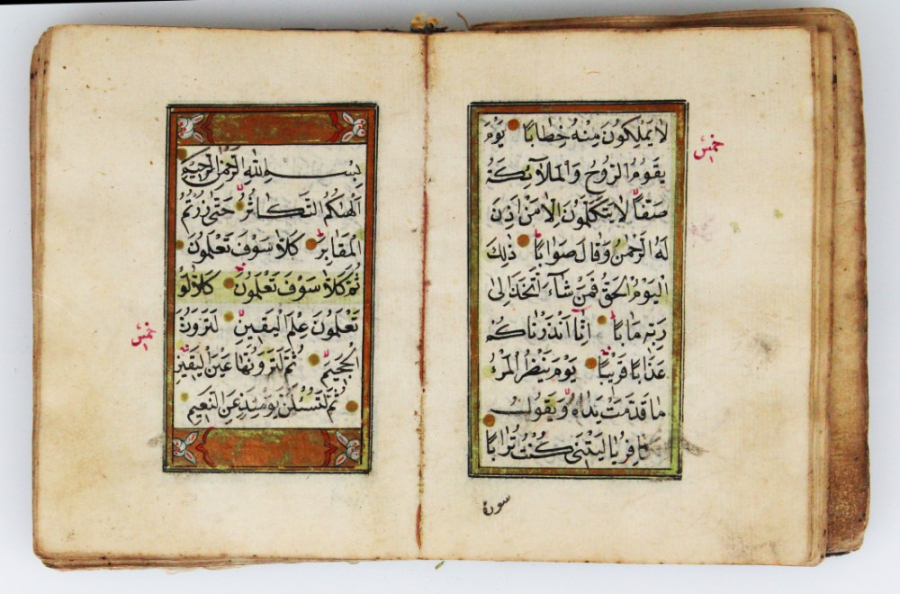 لَا يَمْلِكُونَ مِنْهُ خِطَابًا يَوْمَ
خمس
يَقُومُ الرُّوحُ وَالْمَلَآئِكَةُ
صَفًّا لَا يَتَكَلَّمُونَ اِلَّا مَنْ اَذِنَ
لَهُ الرَّحْمٰنُ وَقَالَ صَوَابًا ذٰلِكَ
الْيَوْمُ الْحَقُّ فَمَنْ شَآءَ اتَّخَذَ اِلٰى
رَبِّهِ مَاٰبًا اِنَّا اَنْذَرْنَاكُمْ
عَذَابًا قَرِيبًا يَوْمَ يَنْظُرُ الْمَرْءُ
مَا قَدَّمَتْ يَدَاهُ وَيَقُولُ
يَا لَيْتَنِى كُنْتُ تُرَابًا
سورة
بِسْمِ اللّٰهِ الرَّحْمٰنِ الرَّحِيمِ
اَلْهٰيكُمُ التَّكَاثُرُ حَتّٰى زُرْتُمُ
الْمَقَابِرَ كَلَّا سَوْفَ تَعْلَمُونَ
ثُمَّ كَلَّا سَوْفَ تَعْلَمُونَ كَلَّا لَوْ
تَعْلَمُونَ عِلْمَ الْيَقِينِ لَتَرَوُنَّ
خمس
الْجَحِيمَ ثُمَّ لَتَرَوُنَّهَا عَيْنَ الْيَقِينِ
ثُمَّ لَتُسْئَلُنَّ يَوْمَئِذٍ عَنِ النَّعِيمِ